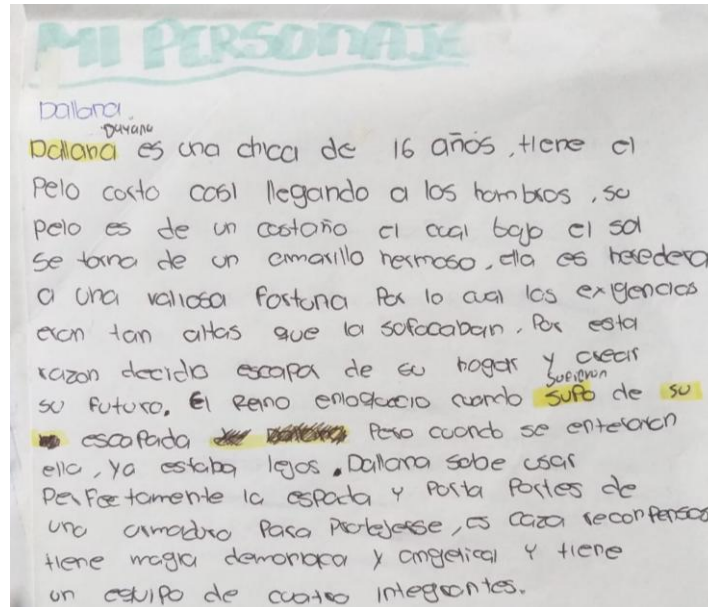 MI PERSONAJE
Dallana.
Dayana
Dallana es una chica de 16 años, tiene el
Pelo corto casi llegando a los hombros, su
pelo es de un castaño el cual bajo el sol
se torna de un amarillo hermoso, ella es heredera
a una valiosa fortuna Por lo cual las exigencias
eran tan altas que la sofocaban. Por esta
razon decidio escapa de su hogar y crear
supieron
su futuro. El Reino enloquecio cuando supo de su
escapada Pero cuando se enteraron
ella, ya estaba lejos. Dallana sabe usar
Perfectamente la espada y Porta Partes de
una armadura Para Protejerse, es caza recompensas
tiene magia demoniaca y angelical y tiene
un equipo de cuatro integrantes.